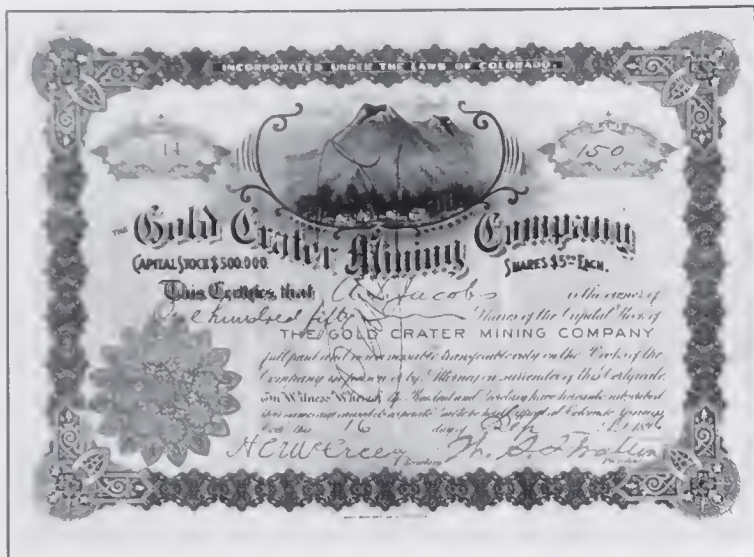 INCORPORATED UNDER THE LAWS OF COLORADO
11 150
THE Gold Crater Mining Company
CAPITAL STOCK $500.000. SHARES $5.00 EACH.
This Certifies that Jacobs is the owner of
One hundred fifty Shares of the Capital Stock of
THE GOLD CRATER MINING COMPANY
full paid and transferable only on the Books of the
Company in person or by Attorney on surrender of this Certificate.
In Witness Whereof the President and Secretary have hereunto subscribed
their names and caused the corporate seal to be affixed at Colorado
this 16 day of
Secretary President